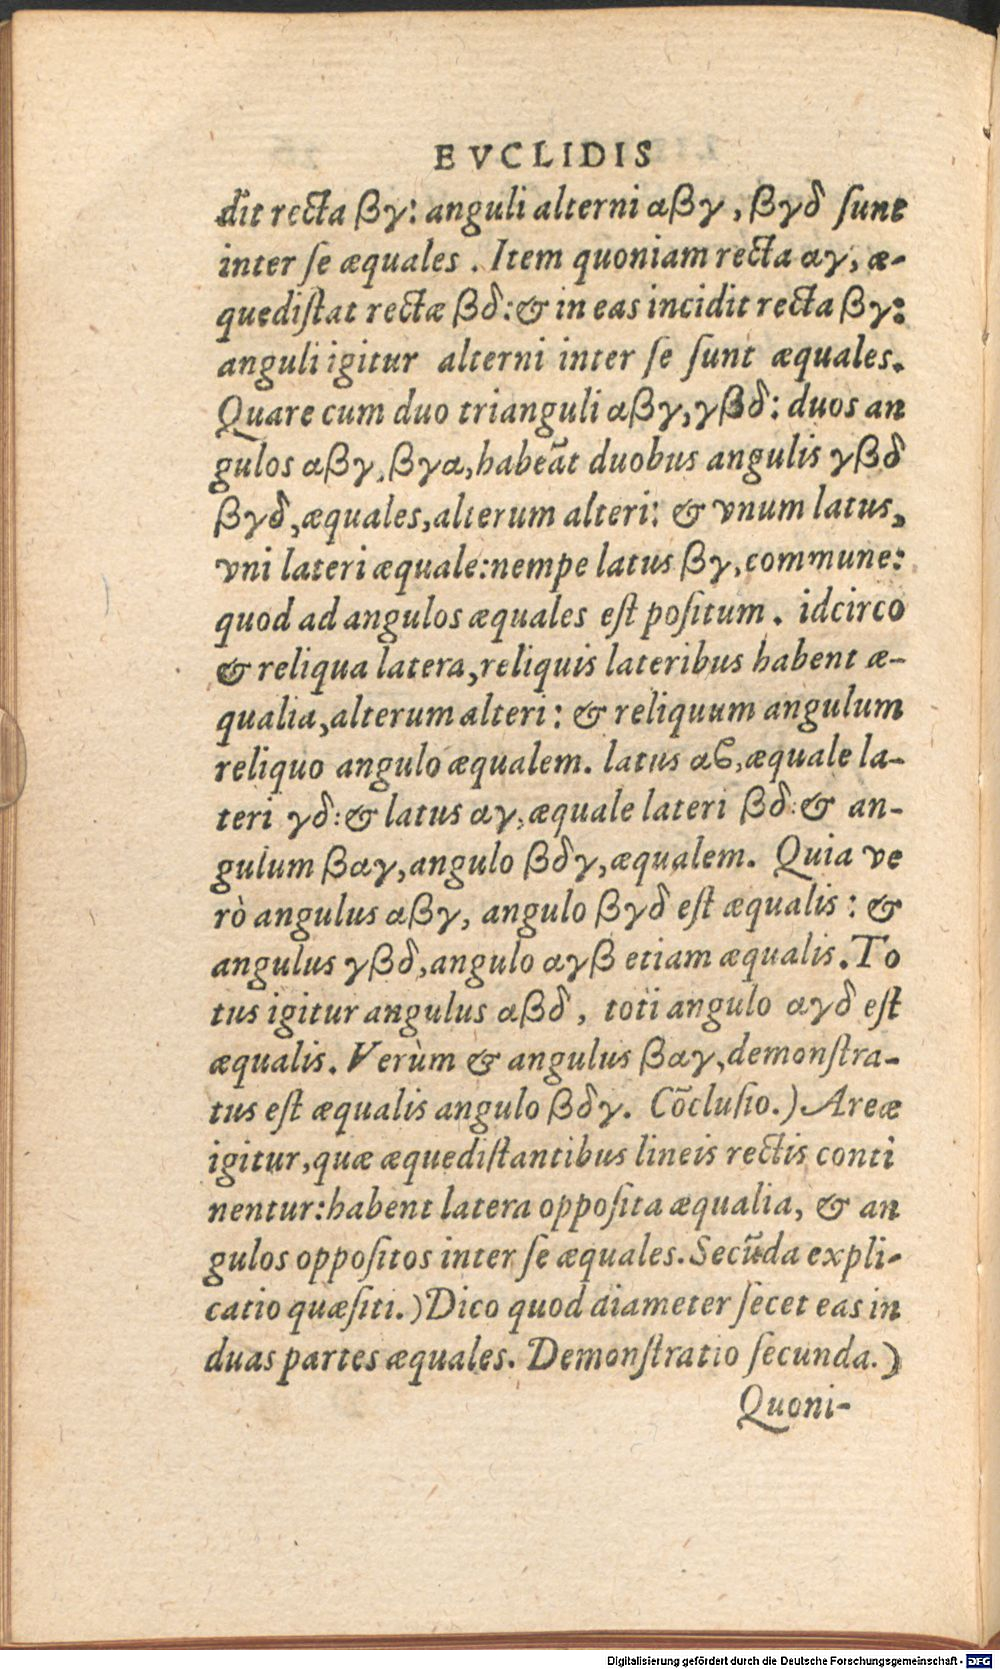 EVCLIDIS
dit recta βγ: anguli alterni αβγ, βγδ ſunt
inter ſe æquales. Item quoniam recta αγ, æ-
quediſtat rectæ βδ: & in eas incidit recta βγ:
anguli igitur alterni inter ſe ſunt æquales.
Quare cum duo trianguli αβγ, γβδ: duos an
gulos αβγ, βγα, habeāt duobus angulis γβδ
βγδ, æquales, alterum alteri: & vnum latus,
vni lateri æquale: nempe latus βγ, commune:
quod ad angulos æquales eſt poſitum. idcirco
& reliqua latera, reliquis lateribus habent æ-
qualia, alterum alteri: & reliquum angulum
reliquo angulo æqualem. latus αϐ, æquale la-
teri γδ: & latus αγ, æquale lateri βδ: & an-
gulum βαγ, angulo βδγ, æqualem. Quia ve
rò angulus αβγ, angulo βγδ eſt æqualis: &
angulus γβδ, angulo αγβ etiam æqualis. To
tus igitur angulus αβδ, toti angulo αγδ eſt
æqualis. Verùm & angulus βαγ, demonſtra-
tus eſt æqualis angulo βδγ. Cōcluſio.) Areæ
igitur, quæ æquediſtantibus lineis rectis conti
nentur: habent latera oppoſita æqualia, & an
gulos oppoſitos inter ſe æquales. Secūda expli-
catio quæſiti.) Dico quod diameter ſecet eas in
duas partes æquales. Demonſtratio ſecunda.)
Quoni-
Digitalisierung gefördert durch die Deutsche Forschungsgemeinschaft - DFG